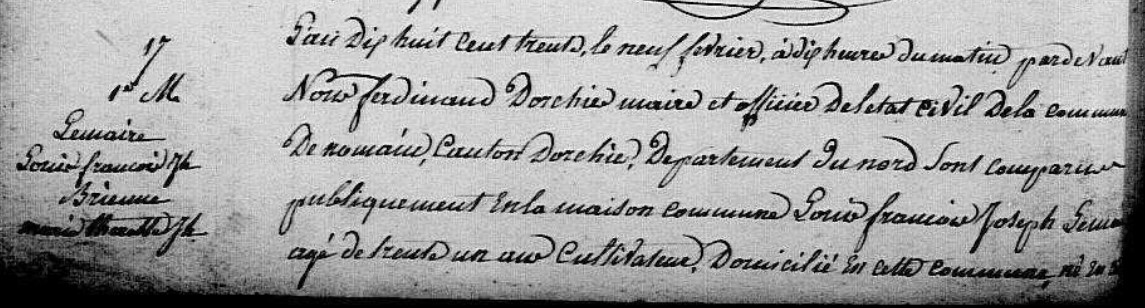 17
1er M
Lemaire
Louis francois Jh
Brienne
marie therese Jh
L'an Dix huit cent trente, le neuf fevrier, à dix heures du matin, par devant
Nous ferdinand Dorchie maire et officier De letat civil De la commune
De nomain, Canton Dorchie, Departement du nord Sont comparus
publiquement En la maison commune Louis francois Joseph Lema
agé de trente un ans Cultivateur, Domicilié En cette commune, né En